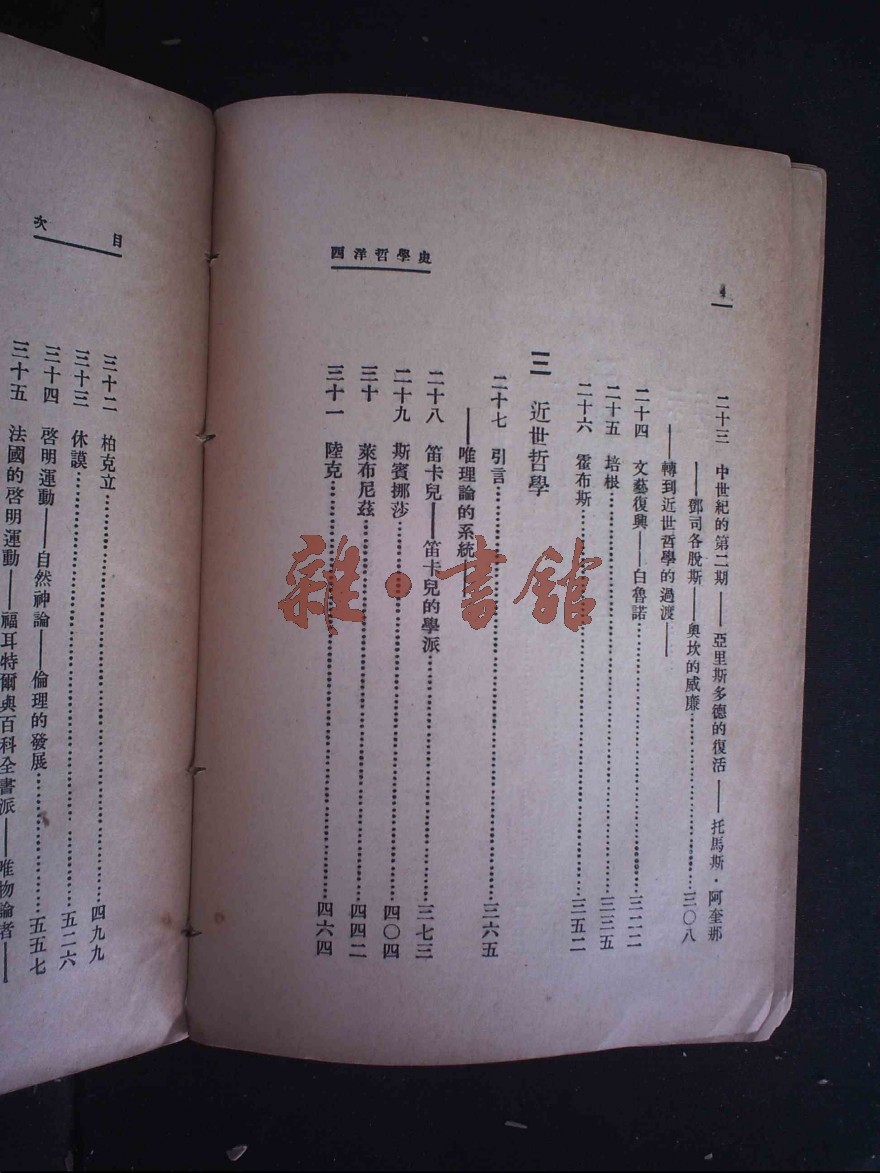 4
西洋哲學史
二十三 中世紀的第二期——亞里斯多德的復活——托馬斯·阿奎那
——鄧司各脫斯——奧坎的威廉……三〇八
——轉到近世哲學的過渡——
二十四 文藝復興——白魯諾……三二二
二十五 培根……三三五
二十六 霍布斯……三五二
三 近世哲學
二十七 引言……三六五
——唯理論的系統——
二十八 笛卡兒——笛卡兒的學派……三七三
二十九 斯賓挪莎……四〇四
三十 萊布尼茲……四四二
三十一 陸克……四六四
目次
三十二 柏克立……四九九
三十三 休謨……五二六
三十四 啓明運動——自然神論——倫理的發展……五五七
三十五 法國的啓明運動——福耳特爾與百科全書派——唯物論者——
雜·書館